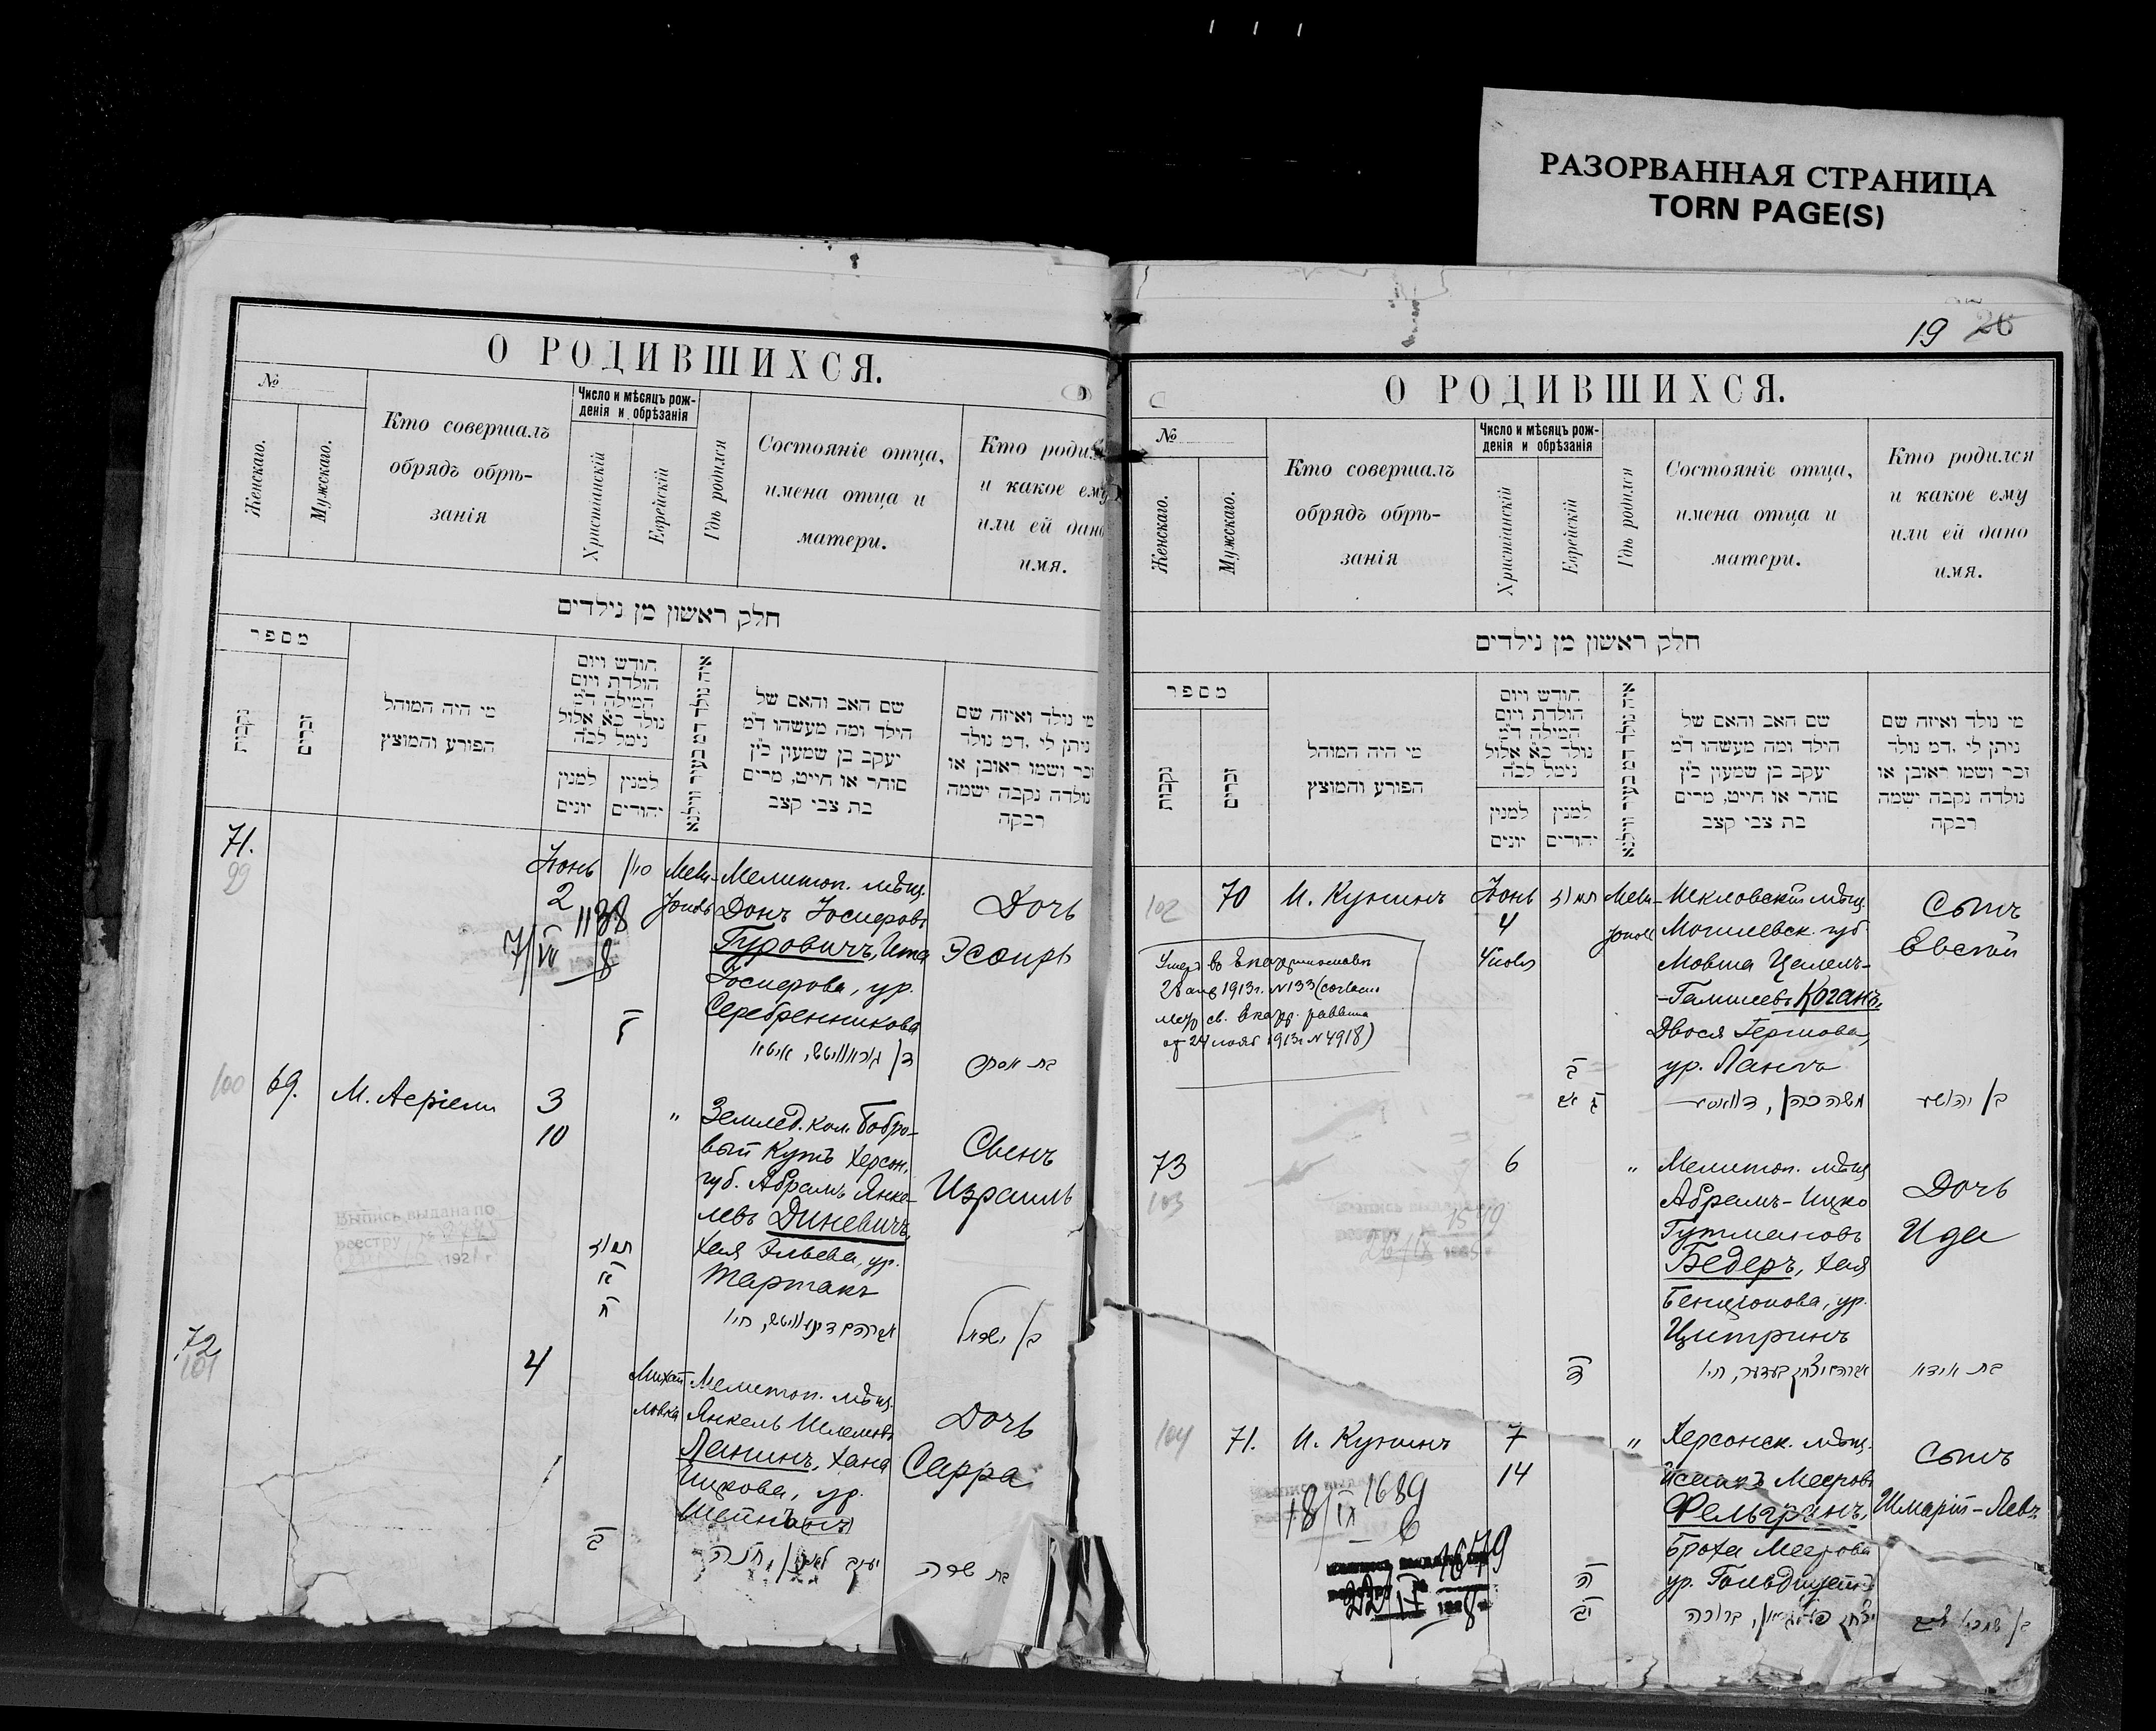 РАЗОРВАННАЯ СТРАНИЦА
TORN PAGE(S)
О РОДИВШИХСЯ.
№
Женскаго.
Мужскаго.
Кто совершалъ
обрядъ обрѣ-
занія
Число и мѣсяцъ рож-
денія и обрѣзанія
Христіанскій
Еврейскій
Гдѣ родился
Состояніе отца,
имена отца и
матери.
Кто родил
и какое ему
или ей дано
имя.
חלק ראשון מן נילדים
מספר
נקבות
זכרים
מי היה המוהל
הפורע והמוצץ
חודש ויום
הולדת ויום
המילה ד״מ
נולד כ״א אלול
נימל לכ״ה
למנין
יונים
למנין
יהודים
שם האב והאם של
הילד ומה מעשהו ד״מ
יעקב בן שמעון כ״ץ
סוחר או חייט, מרים
בת צבי קצב
מי נולד ואיזה שם
ניתן לי .דמ נולד
זכר ושמו ראובן או
נולדה נקבה ישמה
רבקה
71.
99
Іюнь
2
Мели-
тополь
Мелитоп. мѣщ.
Донъ Іосифовъ
Гуровичъ, Ита
Іосифова, ур.
Серебренникова
Дочь
Эсѳирь
1138
7/VI 8
100
69.
М. Аеріели
3
10
"
Землед. кол. Бобро-
вый Кутъ Херсон.
губ. Абрамъ Янке-
левъ Диневичъ,
Хая Эльева, ур.
Тартакъ
Сынъ
Израиль
בן ישראל
Выпись выдана по
реестру №
192 г.
72.
101
4
Михай
ловка
Мелитоп. мѣщ.
Янкель Шлемовъ
Ланинъ, Хана
Ицкова, ур.
Дочь
Сарра
יעקב לאנין, חנה
בת שרה
19 26
О РОДИВШИХСЯ.
№
Женскаго.
Мужскаго.
Кто совершалъ
обрядъ обрѣ-
занія
Число и мѣсяцъ рож-
денія и обрѣзанія
Христіанскій
Еврейскій
Гдѣ родился
Состояніе отца,
имена отца и
матери.
Кто родился
и какое ему
или ей дано
имя.
חלק ראשון מן נילדים
מספר
נקבות
זכרים
מי היה המוהל
הפורע והמוצץ
חודש ויום
הולדת ויום
המילה ד״מ
נולד כ״א אלול
נימל לכ״ה
למנין
יונים
למנין
יהודים
שם האב והאם של
הילד ומה מעשהו ד״מ
יעקב בן שמעון כ״ץ
סוחר או חייט, מרים
בת צבי קצב
מי נולד ואיזה שם
ניתן לי .דמ נולד
זכר ושמו ראובן או
נולדה נקבה ישמה
רבקה
102
70
И. Кунинъ
Іюнь
4
Мели-
тополь
Шкловскій мѣщ.
Могилевск. губ.
Мовша
Коганъ,
Двося Гершова,
ур. Ланъ
Сынъ
Евсей
Умеръ въ Екатеринославѣ
1913 г. №133 (согласно
св. Екатер. раввина
от 24 нояб 1913 г №4918)
משה כהן,
בן יהושע
73
103
6
"
Мелитоп. мѣщ.
Абрамъ-Ицко
Гутмановъ
Бедеръ, Хая
Бенціонова, ур.
Цитринъ
Дочь
Ида
בת אידא
104
71.
И. Кунинъ
7
14
"
Херсонск. мѣщ.
Исаакъ Мееровъ
Фельгранъ,
Броха Меерова
Сынъ
Шмарій-Левъ
1689
18/IX 6
1679
22/IX